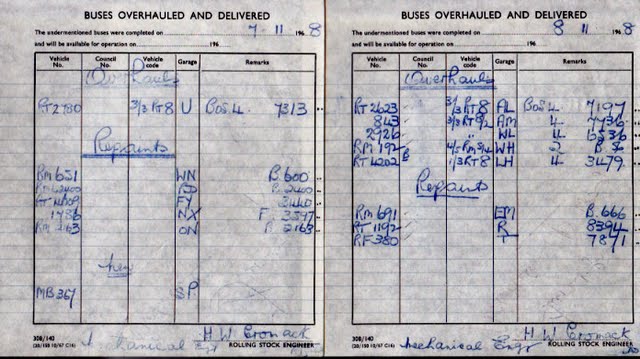 BUSES OVERHAULED AND DELIVERED
The undermentioned buses were completed on 7. 11 1968
and will be available for operation on 196
Vehicle No. Council No. Vehicle code Garage Remarks
Overhauls
RT2780 3/3 RT8 U Bos 4 7313
Repaints
RM 651 WN B. 600
RM 2400 B. 2400
RT 4209 FY 3440
1786 NX F. 3397
RM 2163 ON B. 2163
MB 367 SP
308/140
Mechanical Engr H W Cromack
ROLLING STOCK ENGINEER
BUSES OVERHAULED AND DELIVERED
The undermentioned buses were completed on 8 11 1968
and will be available for operation on 196
Vehicle No. Council No. Vehicle code Garage Remarks
Overhauls
RT 2623 3/3 RT8 AL Bos 4 7197
843 AM 4 7736
2926 " WL 4 6536
RM 192 WH 2
RT 4202 1/3 RT8 LH 4 3479
Repaints
RM 691 B. 666
RT 1192 R 8394
RF 380 T 7871
308/140
Mechanical Engr H W Cromack
ROLLING STOCK ENGINEER